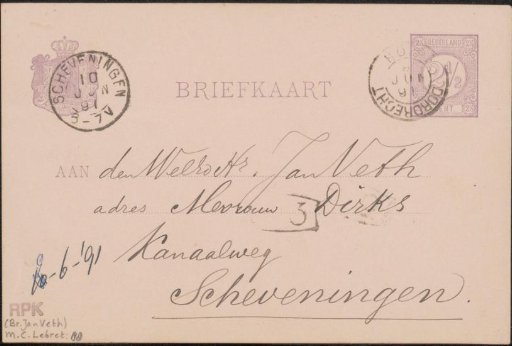 SCHEVENINGEN
10
JUN
91
5-7V
BRIEFKAART
NEDERLAND
2 1/2
DORDRECHT
JUN
91
AAN den WelEdHr. Jan Veth
adres Mevrouw Dirks
3
Kanaalweg
Scheveningen.
10-6-'91
RPK
(Br. Jan Veth)
M.C. Lebret: